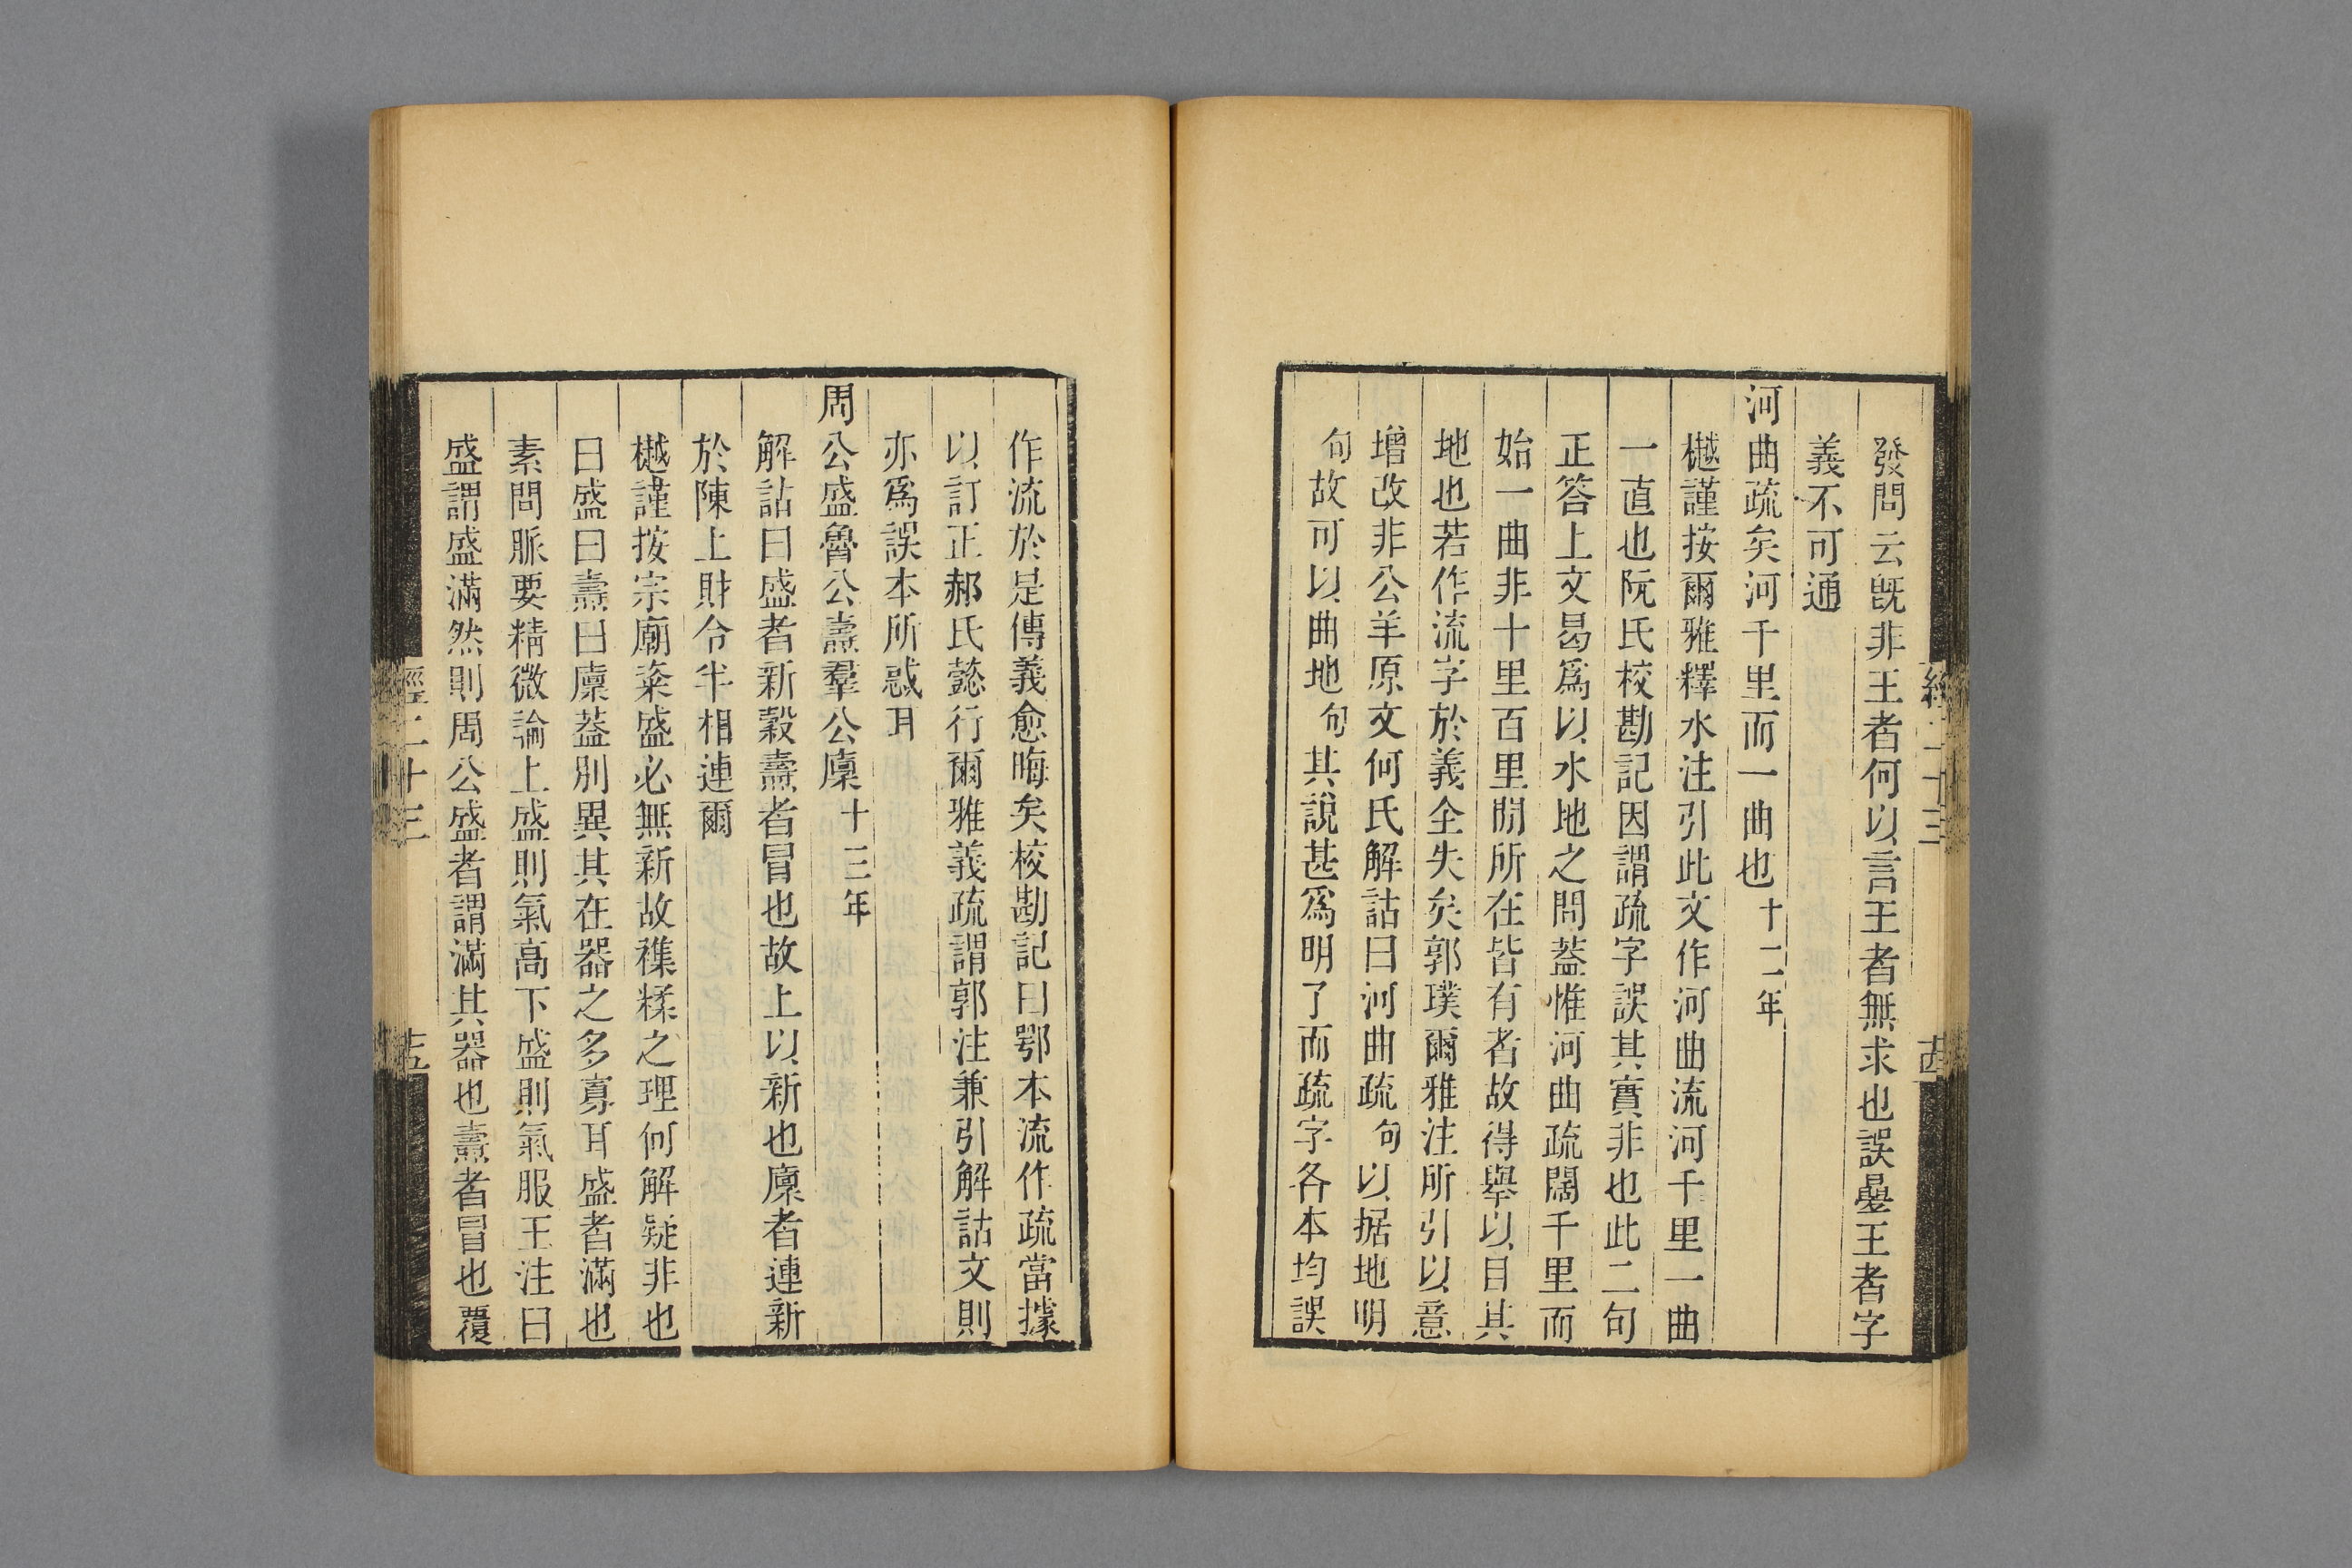 發問云旣非王者何以言王者無求也誤疊王者字
義不可通
河曲疏矣河千里而一曲也十二年
樾謹按爾雅釋水注引此文作河曲流河千里一曲
一直也阮氏校勘記因謂疏字誤其實非也此二句
正答上文曷爲以水地之問蓋惟河曲疏闊千里而
始一曲非十里百里閒所在皆有者故得舉以目其
地也若作流字於義全失矣郭璞爾雅注所引以意
增改非公羊原文何氏解詁曰河曲疏句以据地明
句故可以曲地句其說甚爲明了而疏字各本均誤
作流於是傳義愈晦矣校勘記曰鄂本流作疏當據
以訂正郝氏懿行爾雅義疏謂郭注兼引解詁文則
亦爲誤本所惑耳
周公盛魯公燾羣公廩十三年
解詁曰盛者新穀燾者冒也故上以新也廩者連新
於陳上財令半相連爾
樾謹按宗廟粢盛必無新故襍糅之理何解疑非也
曰盛曰燾曰廩葢別異其在器之多寡耳盛者滿也
素問脈要精微論上盛則氣高下盛則氣服王注曰
盛謂盛滿然則周公盛者謂滿其器也燾者冒也覆
經二十三
十五